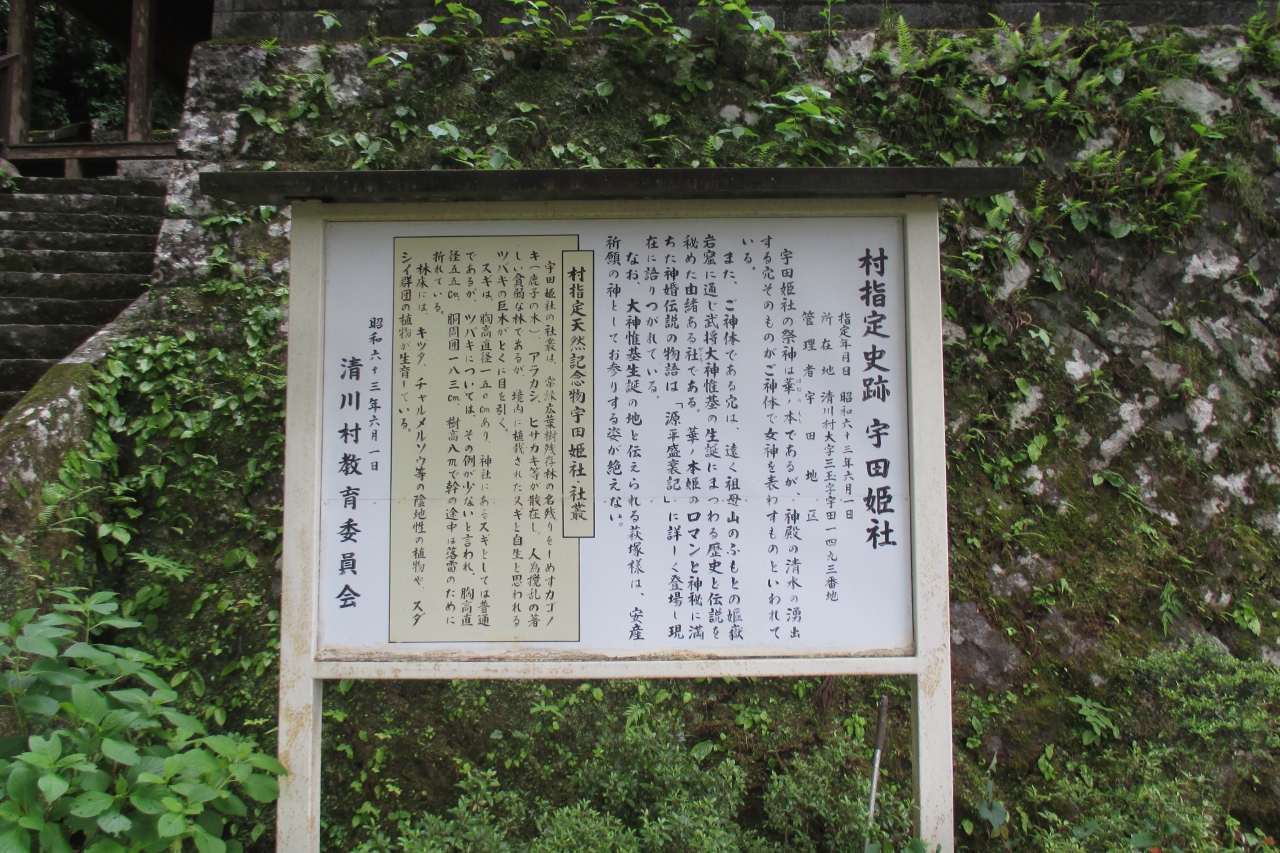 村指定史跡 宇田姫社
指定年月日 昭和六十三年六月一日
所在地 清川村大字三玉字宇田一四九三番地
管理者 宇田地区
宇田姫社の祭神は華ノ本であるが、神殿の清水の湧出
する穴そのものがご神体で女神を表わすものといわれて
いる。
また、ご神体である穴は、遠く祖母山のふもとの姫嶽
岩窟に通じ武将大神惟基の生誕にまつわる歴史と伝説を
秘めた由緒ある社である。華ノ本姫のロマンと神秘に満
ちた神婚伝説の物語は「源平盛衰記」に詳しく登場し現
在に語りつがれている。
なお、大神惟基生誕の地と伝えられる萩塚様は、安産
祈願の神としてお参りする姿が絶えない。
村指定天然記念物宇田姫社・社叢
宇田姫社の社叢は、常緑広葉樹残存林の名残りをしめすカゴノ
キ(鹿子の木)、アラカシ、ヒサカキ等が散在し、人為撹乱の著
しい貧弱な林であるが、境内に植栽されたスギと自生と思われる
ツバキの巨木がとくに目を引く。
スギは、胸高直径一五〇cmあり、神社にあるスギとしては普通
であるが、ツバキについては、その例が少ないと言われ、胸高直
径五五cm、胴周囲一八三cm、樹高八mで幹の途中は落雷のために
折れている。
林床には、キヅタ、チャルメルソウ等の陰地性の植物や、スダ
シイ群団の植物が生育している。
昭和六十三年六月一日
清川村教育委員会